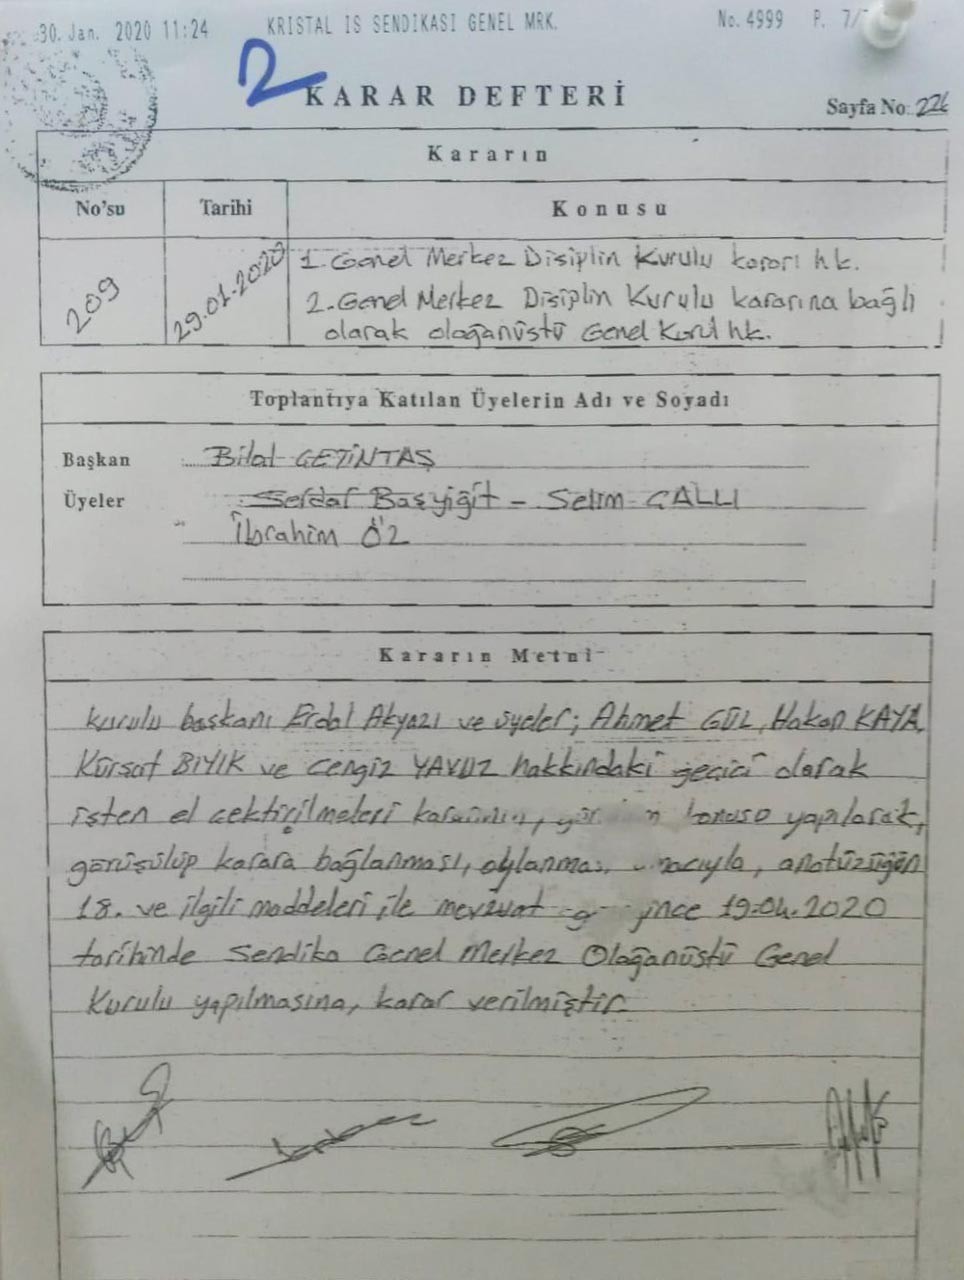 30. Jan. 2020 11:24 KRISTAL IS SENDIKASI GENEL MRK. No. 4999 P. 7/
2
KARAR DEFTERİ
Sayfa No: 226
Kararın
No'su Tarihi Konusu
209 29.01.2020
1. Genel Merkez Disiplin Kurulu kararı hk.
2. Genel Merkez Disiplin Kurulu kararına bağlı
olarak olağanüstü Genel Kurul hk.
Toplantıya Katılan Üyelerin Adı ve Soyadı
Başkan Bilal ÇETİNTAŞ
Üyeler Serdar Başyiğit - Selim ÇALLI
İbrahim ÖZ
Kararın Metni
kurulu başkanı Erdal Akyazı ve üyeler; Ahmet GÜL, Hakan KAYA,
Kürşat BIYIK ve Cengiz YAVUZ hakkındaki geçici olarak
işten el çektirilmeleri kararının, yapılarak,
görüşülüp karara bağlanması, oylanması amacıyla, anatüzüğün
18. ve ilgili maddeleri ile mevzuat 19.04.2020
tarihinde Sendika Genel Merkez Olağanüstü Genel
Kurulu yapılmasına, karar verilmiştir.